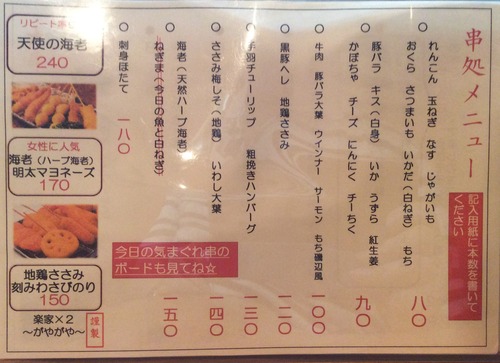 串処メニュー
記入用紙に本数を書いて
ください
れんこん 玉ねぎ なす じゃがいも
おくら さつまいも いかだ(白ねぎ) もち
八〇
豚バラ キス(白身) いか うずら 紅生姜
かぼちゃ チーズ にんにく チーちく
九〇
牛肉 豚バラ大葉 ウインナー サーモン もち磯辺風
一〇〇
黒豚ヘレ 地鶏ささみ
一二〇
手羽チューリップ 粗挽きハンバーグ
一三〇
ささみ梅しそ(地鶏) いわし大葉
一四〇
海老(天然ハーブ海老)
ねぎま(今日の魚と白ねぎ)
一五〇
刺身ほたて
一八〇
今日の気まぐれ串の
ボードも見てね☆
天使の海老
240
女性に人気
海老(ハーブ海老)
明太マヨネーズ
170
地鶏ささみ
刻みわさびのり
150
楽家×2
~がやがや~
謹製